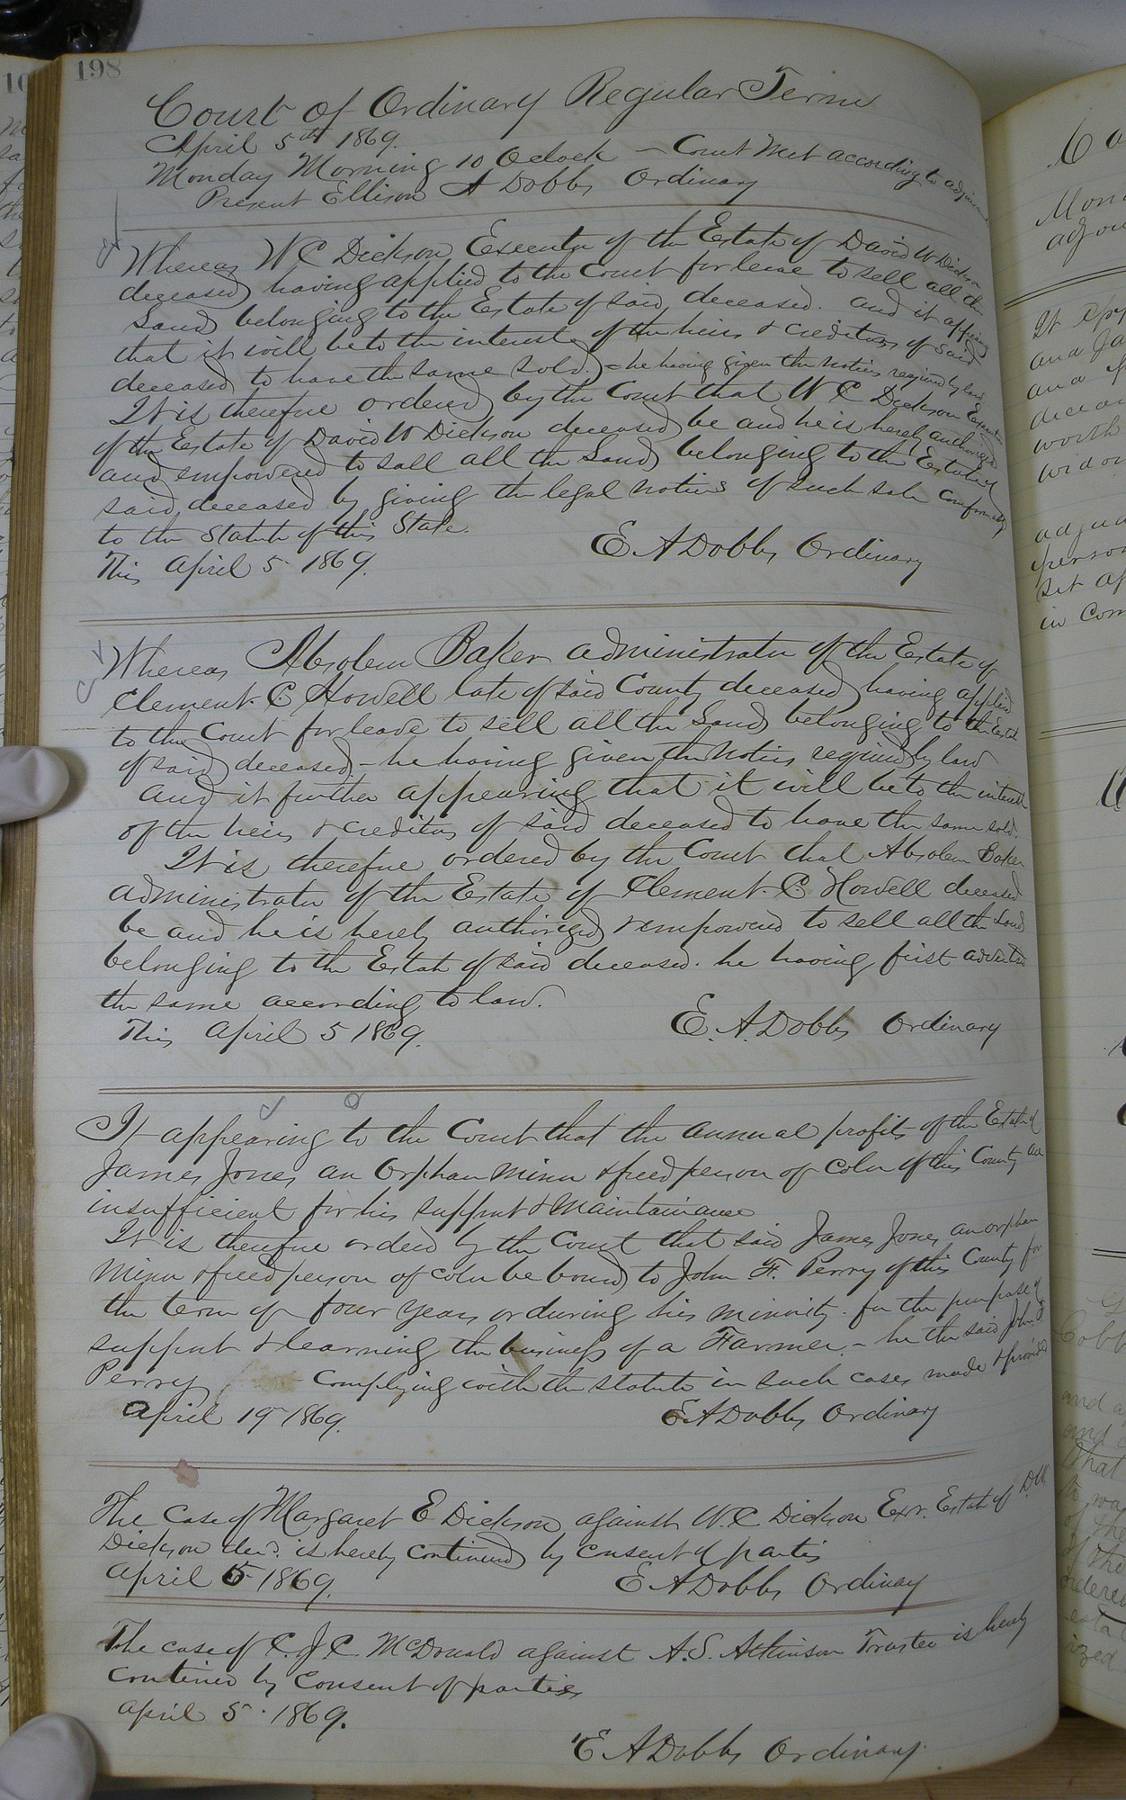 198
Court of Ordinary Regular Term
April 5th 1869.
Monday Morning 10 Oclock - Court Met according to adjournment
Present Ellison A Dobbs Ordinary
Whereas W C Dickson Executor of the Estate of David W Dickson
deceased having applied to the Court for leave to sell all the
Land belonging to the Estate of said deceased. and it appearing
that it will be to the interest of the heirs & creditors of said
deceased to have the same sold. - he having given the notice required by law
It is therefore ordered by the Court that W C Dickson Executor
of the Estate of David W Dickson deceased be and he is hereby authorized
and empowered to sell all the Land belonging to the Estate of
said deceased by giving the legal notice of such sale conformably
to the Statute of this State.
This April 5 1869. E A Dobbs Ordinary
Whereas Absolem Baker administrator of the Estate of
Clement C Howell late of said County deceased having applied
to the Court for leave to sell all the Land belonging to the Estate
of said deceased - he having given the Notice required by law
and it further appearing that it will be to the interest
of the heirs & creditors of said deceased to have the same sold.
It is therefore ordered by the Court that Absolem Baker
administrator of the Estate of Clement C Howell deceased
be and he is hereby authorized & empowered to sell all the Land
belonging to the Estate of said deceased. he having first advertised
the same according to law.
This April 5 1869. E. A. Dobbs Ordinary
It appearing to the Court that the annual profits of the Estate of
James Jones an Orphan minor & freed person of color of this County are
insufficient for his support & Maintainance
It is therefore ordered by the Court that said James Jones, an orphan
minor & freed person of color be bound to John F. Perry of this County for
the term of four years or during his minority. for the purpose of
support & learning the business of a Farmer - he the said John F
Perry - Complying with the statute in such cases made & provided
April 19 1869. E A Dobbs Ordinary
The Case of Margaret E Dickson against W. C Dickson Exr. Estate of D W
Dickson decd. is hereby continued by consent of parties
April 5 1869. E A Dobbs Ordinary
The case of C. J C McDonald against A. S. Atkinson Trustee is hereby
Continued by Consent of parties
April 5. 1869.
E A Dobbs Ordinary